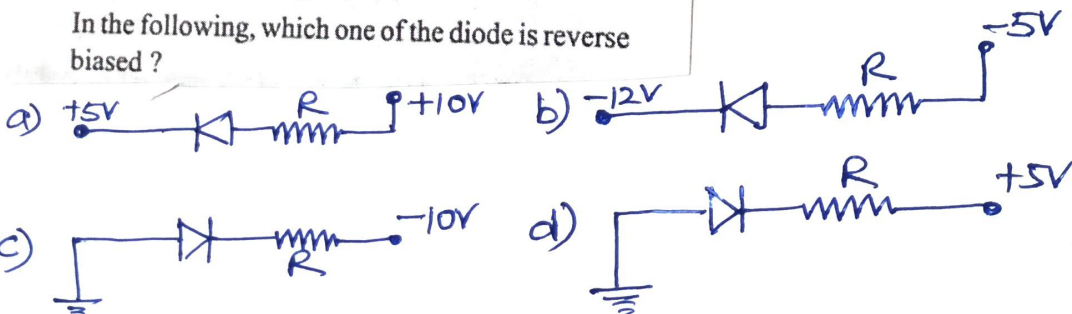 In the following, which one of the diode is reverse
biased ?
a) +5V R +10V
b) -12V R -5V
c) R -10V
d) R +5V